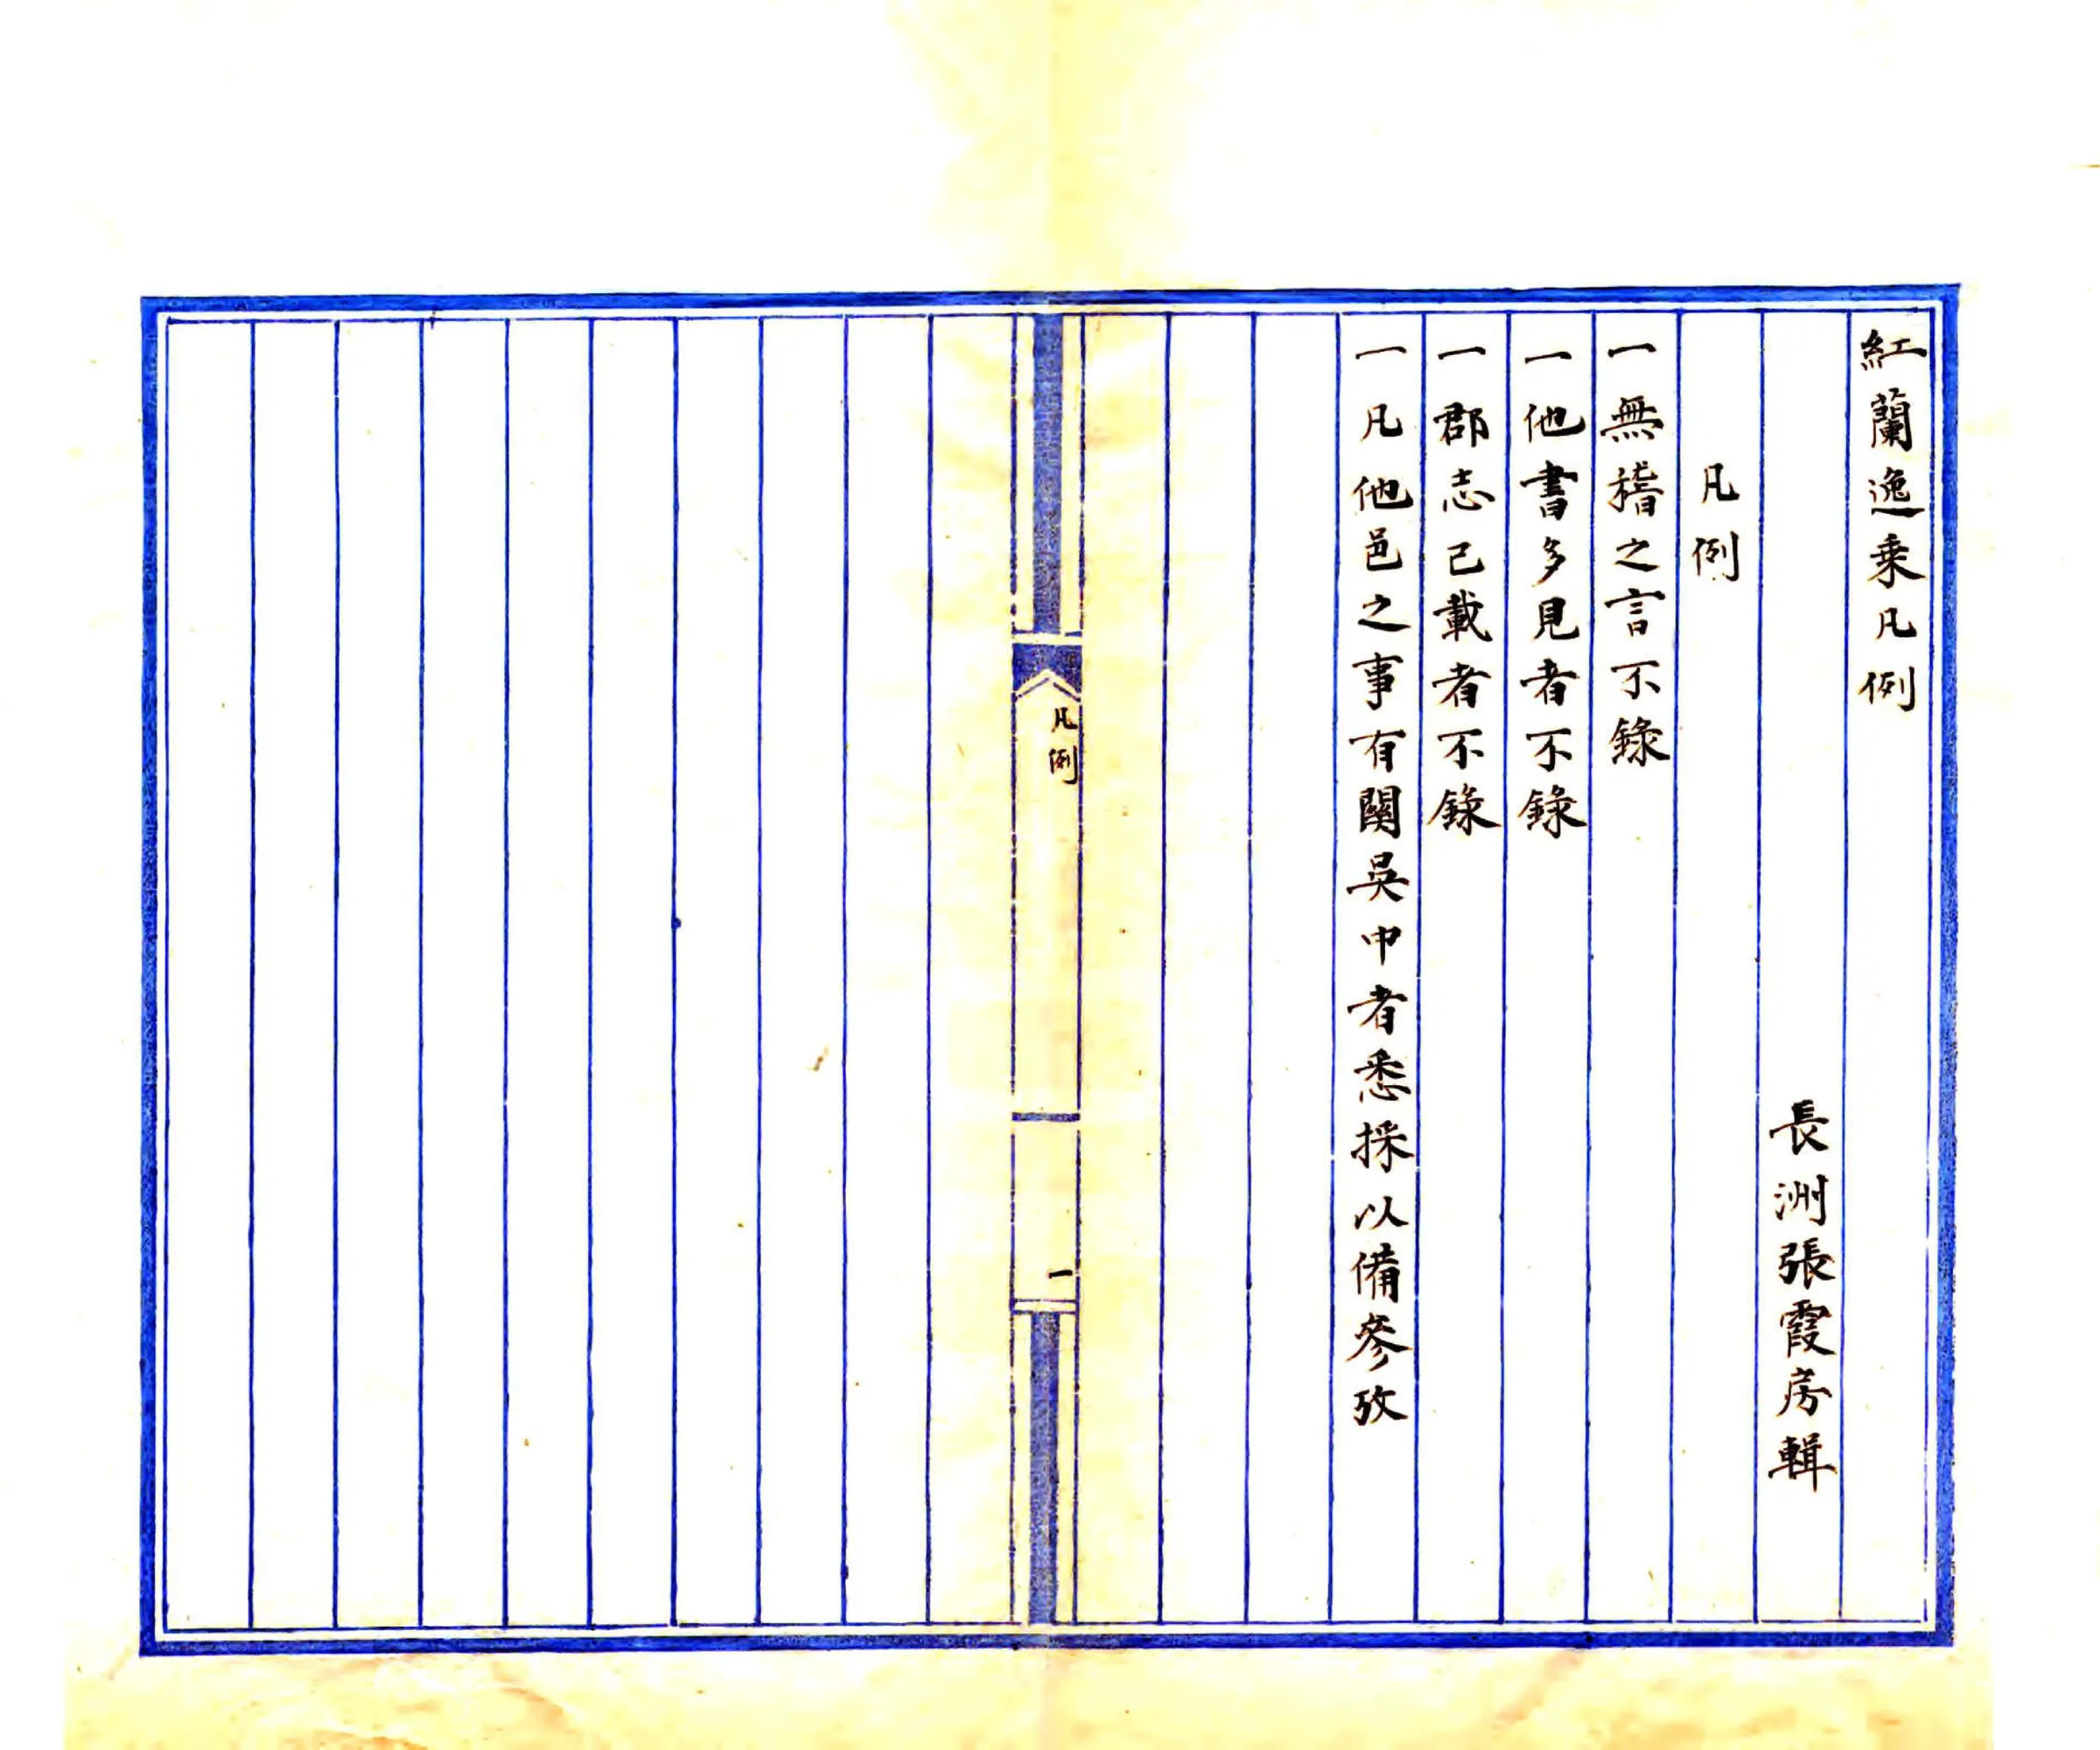 紅蘭逸乗凡例
長洲張霞房輯
凡例
一無稽之言不錄
一他書多見者不錄
一郡志已載者不錄
一凡他邑之事有関吳中者悉採以備參攷
凡例
一